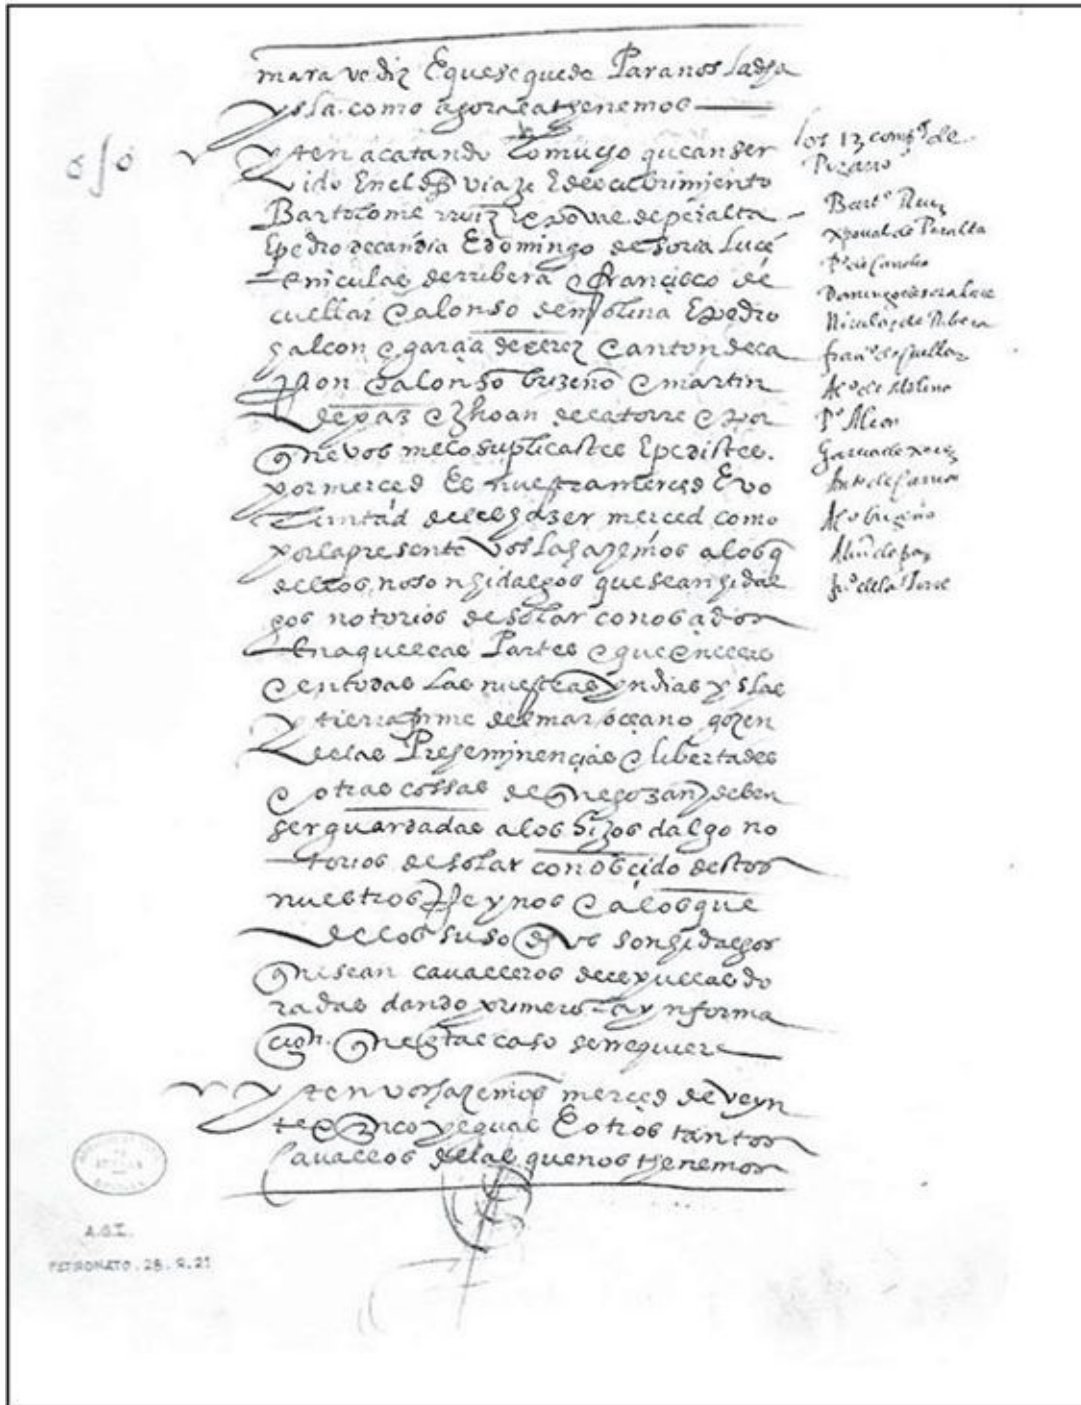 maravediz E que se quede Para nos La dha
ysla. como agora la thenemos
yten acatando Lo mucho que an ser
vido En el dho viaje E descubrimiento
Bartolome rruiz xpoval de peralta
E pedro de candia E domingo de soria Luce
E niculas de rribera E francisco de
cuellar E alonso de molina E pedro
halcon E garcia de xerez E anton de ca
rrion E alonso brizeño E martin
de paz E Jhoan de la torre E por
que vos me lo suplicastes E pedistes.
por merced Es nuestra merced E vo
luntad de les hazer merced como
por la presente vos la hazemos a los q
dellos no son hidalgos que sean hidal
gos notorios de solar conoscidos
En aquellas Partes E que En ellas
E en todas Las nuestras yndias yslas
y tierra firme del mar oceano gozen
de las Preheminencias E libertades
E otras cossas de que gozan y deben
ser guardadas a los hijos dalgo no
torios de solar conoscido destos
nuestros Reynos E a los que
de los suso dhos son hidalgos
que sean cavalleros de espuelas do
radas dando primero La ynforma
cion. que En tal caso se requiere
yten vos hazemos merced de veyn
te E cinco yeguas E otros tantos
cavallos de las que nos thenemos
los 13 compos de
Pizarro
Barte Ruiz
xpoval de Peralta
Po de Candia
Domingo de soraluce
Nicolas de Ribera
franco de Cuellar
Alo de Molina
Po Alcon
Garcia de xerez
Anto de Carrion
Alo brizeño
Min de paz
Ju de la Torre
A.G.I.
PATRONATO. 28. R. 21